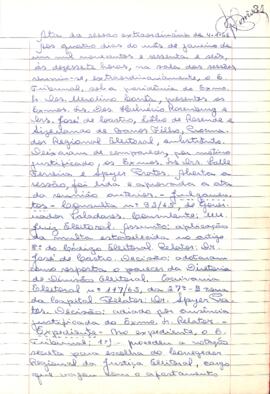 Ata da sessão extraordinária de 4-1-66
Aos quatro dias do mês de janeiro de
um mil novecentos e sessenta e seis,
às dezessete horas, na sala das sessões
reuniu-se, extraordinariamente, o E.
Tribunal, sob a presidência do Exmo.
Sr. Des. Merolino Corrêa, presentes os
Exmos. Srs. Des. Horneung e
Drs. José de Castro, Edésio de Resende e
de Barros Filho, Procura-
dor Regional Eleitoral, substituto.
Deixaram de comparecer, por motivo
justificado, os Exmos. Srs. Drs. Valle
Ferreira e Spyer Prates. Aberta a
sessão, foi lida e aprovada a ata
da reunião anterior. - Julgamen-
tos - Consulta nº 93/65, de Gover-
nador Valadares. Consulente: MM.
Juiz Eleitoral. Assunto: aplicação
da multa estabelecida no artigo
8º do Código Eleitoral. Relator: Dr.
José de Castro. Decisão: adotaram
como resposta o parecer da Diretoria
da Divisão Eleitoral.
Eleitoral nº 117/65, da 27ª zona
da Capital. Relator: Dr. Spyer Pra-
tes. Decisão: adiado por ausência
justificada do Exmo. Sr. Relator. -
Expediente - No expediente, o E.
Tribunal: 1º) - procedeu a votação
secreta para escolha do Corregedor
Regional da Justiça Eleitoral, cargo
que vagou com o afastamento